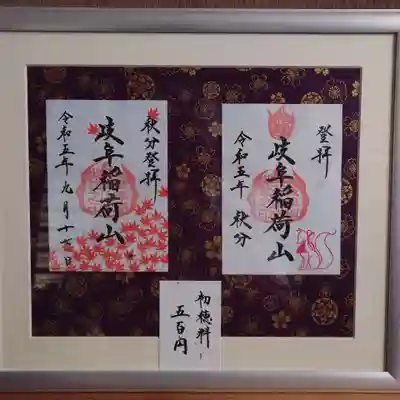 秋分登拝
岐阜稲荷山
令和五年九月十六日
登拝
岐阜稲荷山
令和五年 秋分
初穂料
五百円